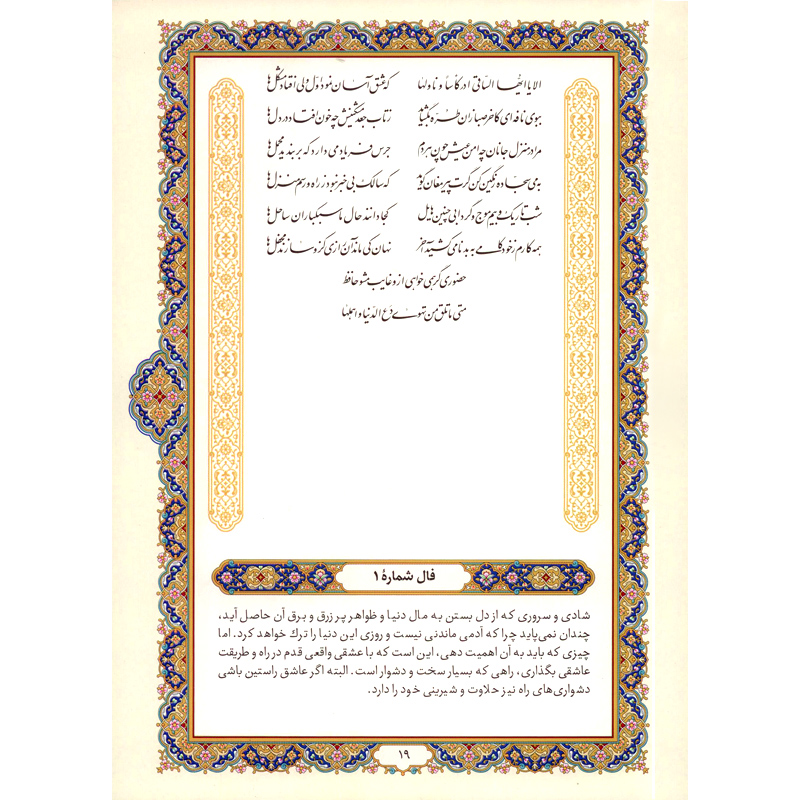 الا یا ایها الساقی ادر کأسا و ناولها که عشق آسان نمود اول ولی افتاد مشکل‌ها
ببوی نافه‌ای کاخر صبا زان طره بگشاید ز تاب جعد مشکینش چه خون افتاد در دل‌ها
مرا در منزل جانان چه امن عیش چون هر دم جرس فریاد می‌دارد که بربندید محمل‌ها
به می سجاده رنگین کن گرت پیر مغان گوید که سالک بی خبر نبود ز راه و رسم منزل‌ها
شب تاریک و بیم موج و گردابی چنین هایل کجا دانند حال ما سبکباران ساحل‌ها
همه کارم ز خودکامی به بدنامی کشید آخر نهان کی ماند آن رازی کزو سازند محفل‌ها
حضوری گر همی خواهی ازو غایب مشو حافظ
متی ما تلق من تهوی دع الدنیا و اهملها
فال شمارهٔ ۱
شادی و سروری که از دل بستن به مال دنیا و ظواهر پر زرق و برق آن حاصل آید،
چندان نمی‌پاید چرا که آدمی ماندنی نیست و روزی این دنیا را ترك خواهد کرد. اما
چیزی که باید به آن اهمیت دهی، این است که با عشقی واقعی قدم در راه و طریقت
عاشقی بگذاری، راهی که بسیار سخت و دشوار است. البته اگر عاشق راستین باشی
دشواری‌های راه نیز حلاوت و شیرینی خود را دارد.
۱۹